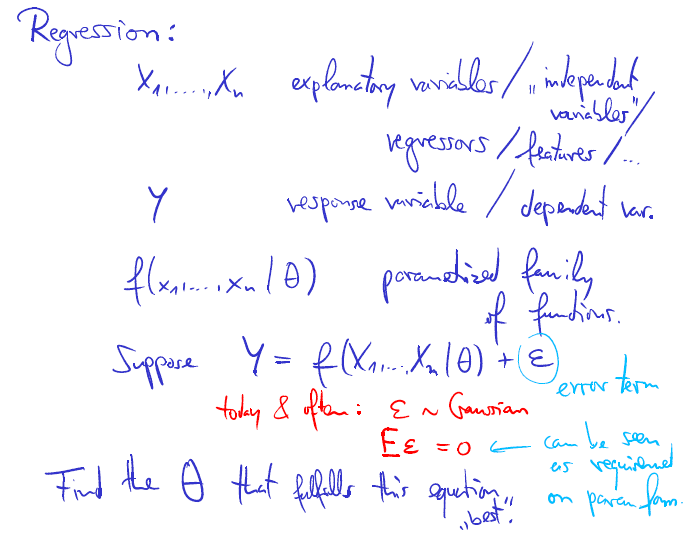 Regression:
X₁,....,Xₙ explanatory variables / „independent
variables"/
regressors / features / ...
Y response variable / dependent var.
f(x₁,...,xₙ | θ) parametized family
of functions.
Suppose Y = f(X₁,...,Xₙ | θ) + ε
error term
today & often: ε ~ Gaussian
Eε = 0 ← can be seen
as requirement
on param form.
Find the θ that fulfills this equation
„best".